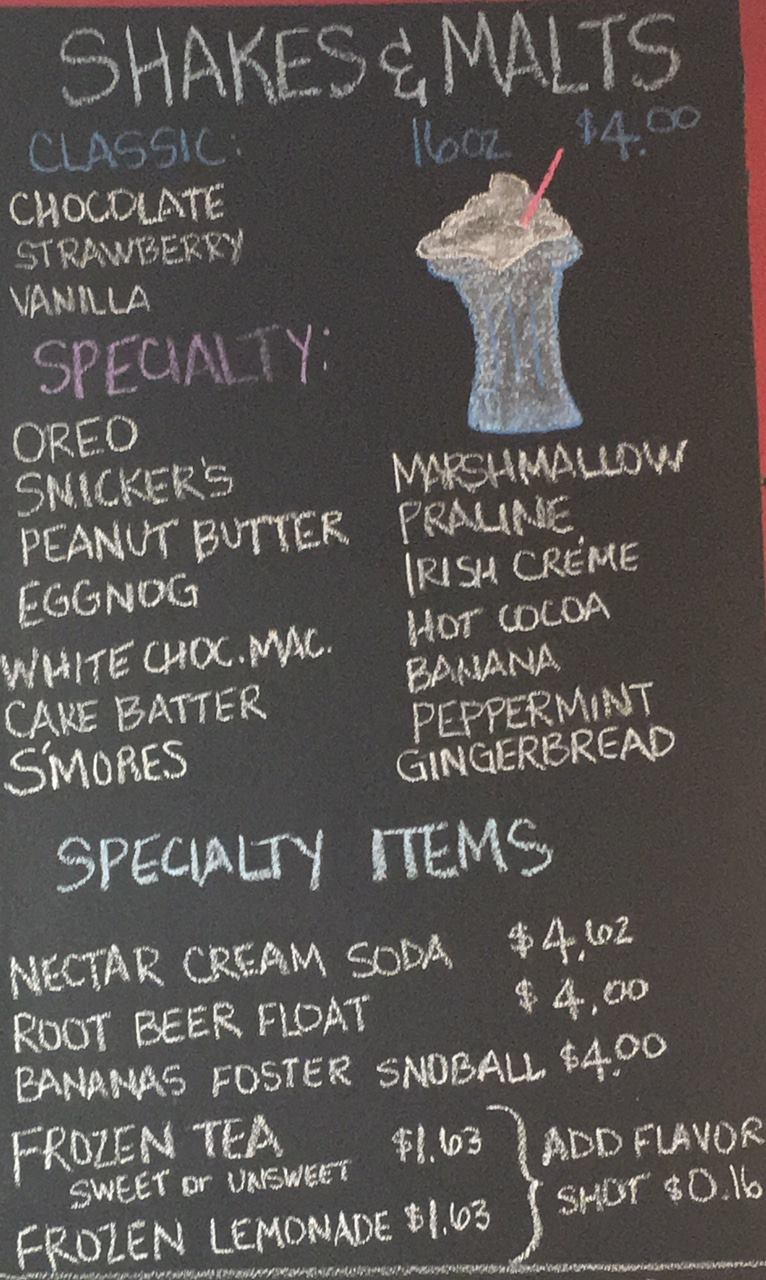 SHAKES & MALTS
CLASSIC: 16oz $4.00
CHOCOLATE
STRAWBERRY
VANILLA
SPECIALTY:
OREO
SNICKER'S
PEANUT BUTTER
EGGNOG
WHITE CHOC. MAC.
CAKE BATTER
S'MORES
MARSHMALLOW
PRALINE
IRISH CRÉME
HOT COCOA
BANANA
PEPPERMINT
GINGERBREAD
SPECIALTY ITEMS
NECTAR CREAM SODA $4.62
ROOT BEER FLOAT $4.00
BANANAS FOSTER SNOBALL $4.00
FROZEN TEA $1.63
SWEET or UNSWEET
FROZEN LEMONADE $1.63
ADD FLAVOR
SHOT $0.16